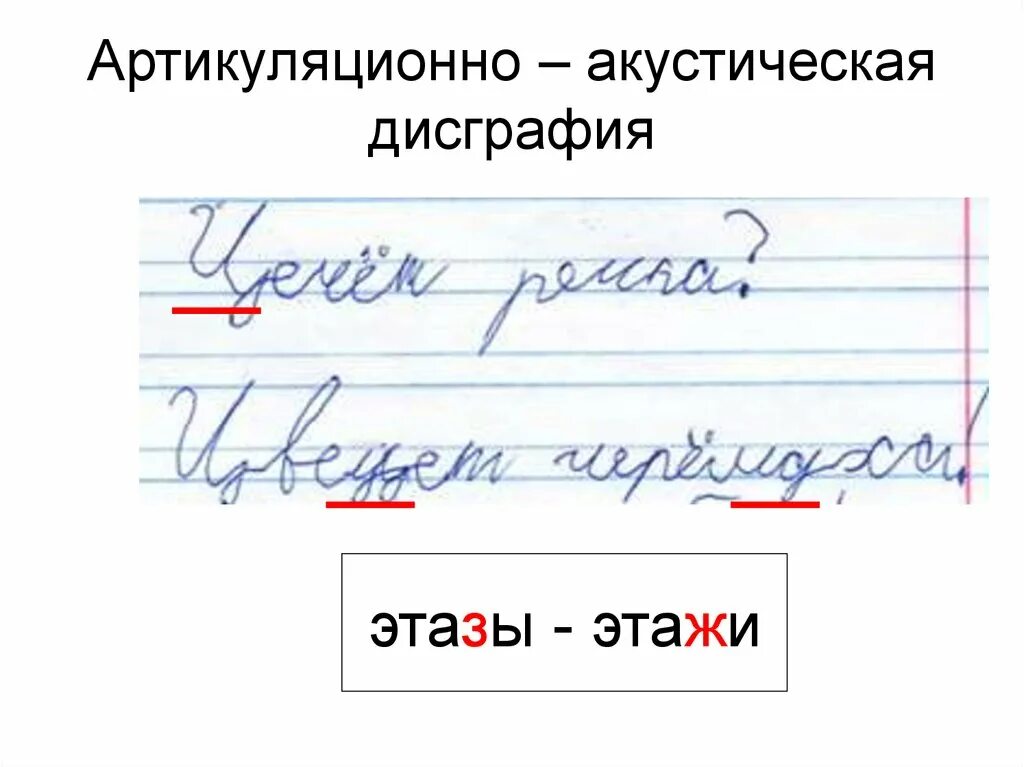 Артикуляционно – акустическая
дисграфия
Цечёт река?
Цвецет черёмуха!
этазы - этажи